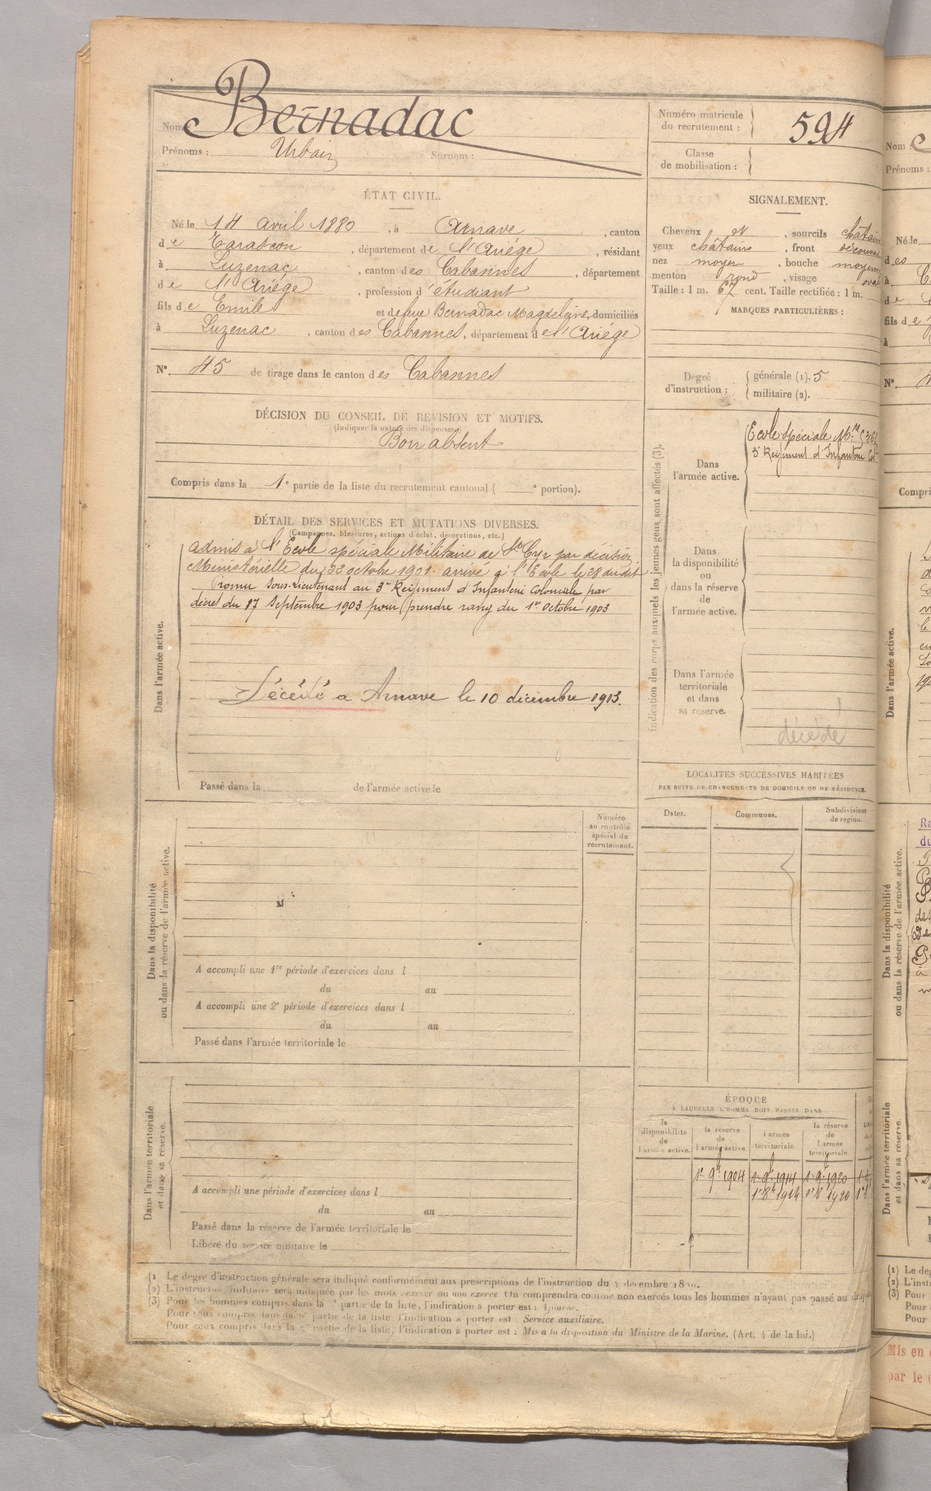 Bernadac
Nom
Prénoms : Urbain Surnom :
Numéro matricule
du recrutement :
594
Classe
de mobilisation :
ÉTAT CIVIL.
Né le 14 avril 1880, à Arnave, canton
de Tarascon, département de l'Ariége, résidant
à Luzenac, canton des Cabannes, département
de l'Ariége, profession d'étudiant
fils de Emile et de feue Bernadac Magdeleine, domiciliés
à Luzenac, canton des Cabannes, département de l'Ariége
N° 45 de tirage dans le canton des Cabannes
SIGNALEMENT.
Cheveux et, sourcils châtain
yeux châtains, front découvert
nez moyen, bouche moyenne
menton rond, visage oval
Taille : 1 m. 67 cent. Taille rectifiée : 1 m.
MARQUES PARTICULIÈRES :
Degré
d'instruction :
générale (1). 5
militaire (2).
DÉCISION DU CONSEIL DE REVISION ET MOTIFS.
(Indiquer la nature des dispenses.)
Bon absent
Compris dans la 1e partie de la liste du recrutement cantonal ( e portion).
DÉTAIL DES SERVICES ET MUTATIONS DIVERSES.
(Campagnes, blessures, actions d'éclat, décorations, etc.)
Dans l'armée active.
admis à l'Ecole spéciale Militaire de St Cyr par décision
Ministérielle du 22 octobre 1901 arrivé à l'Ecole le 28 du dit
Promu Sous-lieutenant au 3e Régiment d'Infanterie Coloniale par
décret du 17 Septembre 1903 pour prendre rang du 1er Octobre 1903
Décédé à Arnave le 10 décembre 1913.
Passé dans la de l'armée active le
Indication des corps auxquels les jeunes gens sont affectés (3).
Dans
l'armée active.
Ecole spéciale Mre
3e Régiment d'Infanterie Col
Dans
la disponibilité
ou
dans la réserve
de
l'armée active.
Dans l'armée
territoriale
et dans
sa réserve.
décédé
LOCALITÉS SUCCESSIVES HABITÉES
PAR SUITE DE CHANGEMENTS DE DOMICILE OU DE RÉSIDENCE.
Dates.
Communes.
Subdivisions
de région.
Dans la disponibilité
ou dans la réserve de l'armée active.
Numéro
au contrôle
spécial du
recrutement.
A accompli une 1re période d'exercices dans l
du au
A accompli une 2e période d'exercices dans l
du au
Passé dans l'armée territoriale le
Dans l'armée territoriale
et dans sa réserve.
A accompli une période d'exercices dans l
du au
Passé dans la réserve de l'armée territoriale le
Libéré du service militaire le
ÉPOQUE
À LAQUELLE L'HOMME DOIT PASSER DANS
la
disponibilité
de
l'armée active.
la réserve
de
l'armée active
l'armée
territoriale.
la réserve
de
l'armée
territoriale.
1er 9bre 1904 1er 9bre 1914 1er 9bre 1920
1er 8bre 1914 1er 8bre 1920
(1) Le degré d'instruction générale sera indiqué conformément aux prescriptions de l'instruction du 4 décembre
(2) L'instruction militaire sera indiquée par les mots exercé ou non exercé On comprendra comme non exercés tous les hommes n'ayant pas passé au
(3) Pour les hommes compris dans la partie de la liste, l'indication à porter est :
Pour ceux compris dans la partie de la liste l'indication à porter est : Service auxiliaire.
Pour ceux compris dans la partie de la liste, l'indication à porter est : Mis à la disposition du Ministre de la Marine. (Art. 4 de la loi.)
Mis en
par le